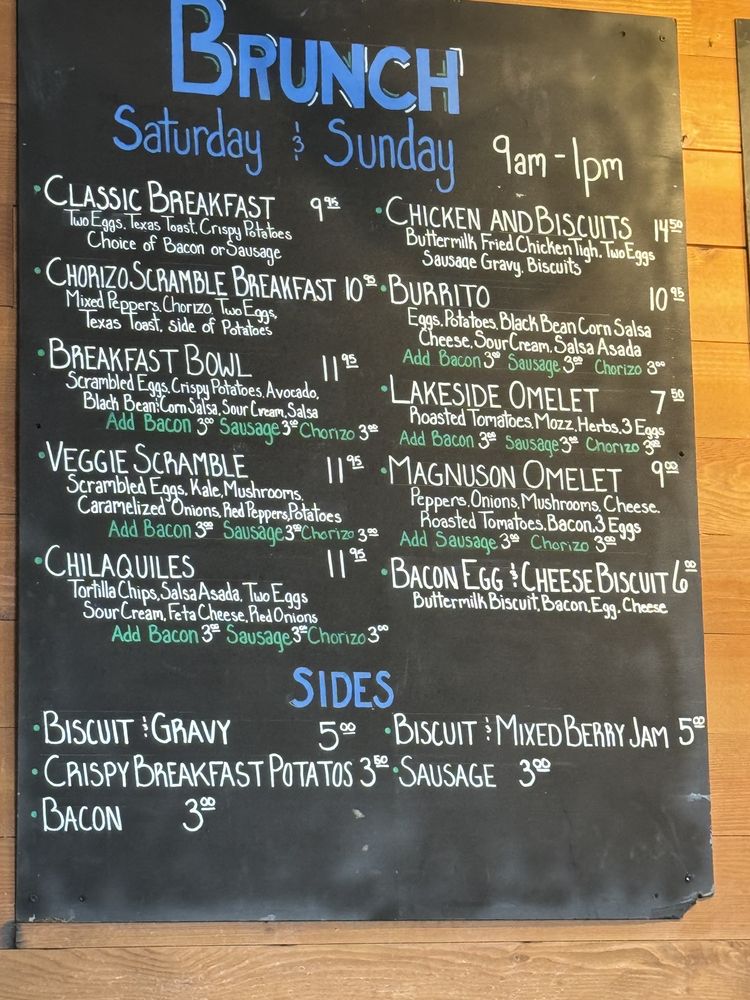 BRUNCH
Saturday & Sunday 9am-1pm
CLASSIC BREAKFAST 9.95
Two Eggs, Texas Toast, Crispy Potatoes
Choice of Bacon or Sausage
CHORIZO SCRAMBLE BREAKFAST 10.95
Mixed Peppers, Chorizo, Two Eggs,
Texas Toast, side of Potatoes
BREAKFAST BOWL 11.95
Scrambled Eggs, Crispy Potatoes, Avocado,
Black Bean & Corn Salsa, Sour Cream, Salsa
Add Bacon 3.00 Sausage 3.00 Chorizo 3.00
VEGGIE SCRAMBLE 11.95
Scrambled Eggs, Kale, Mushrooms,
Caramelized Onions, Red Peppers, Potatoes
Add Bacon 3.00 Sausage 3.00 Chorizo 3.00
CHILAQUILES 11.95
Tortilla Chips, Salsa Asada, Two Eggs
Sour Cream, Feta Cheese, Red Onions
Add Bacon 3.00 Sausage 3.00 Chorizo 3.00
CHICKEN AND BISCUITS 14.50
Buttermilk Fried Chicken Tigh, Two Eggs
Sausage Gravy, Biscuits
BURRITO 10.95
Eggs, Potatoes, Black Bean Corn Salsa
Cheese, Sour Cream, Salsa Asada
Add Bacon 3.00 Sausage 3.00 Chorizo 3.00
LAKESIDE OMELET 7.50
Roasted Tomatoes, Mozz, Herbs, 3 Eggs
Add Bacon 3.00 Sausage 3.00 Chorizo 3.00
MAGNUSON OMELET 9.00
Peppers, Onions, Mushrooms, Cheese,
Roasted Tomatoes, Bacon, 3 Eggs
Add Sausage 3.00 Chorizo 3.00
BACON EGG & CHEESE BISCUIT 6.00
Buttermilk Biscuit, Bacon, Egg, Cheese
SIDES
BISCUIT & GRAVY 5.00
BISCUIT & MIXED BERRY JAM 5.00
CRISPY BREAKFAST POTATOS 3.50
SAUSAGE 3.00
BACON 3.00